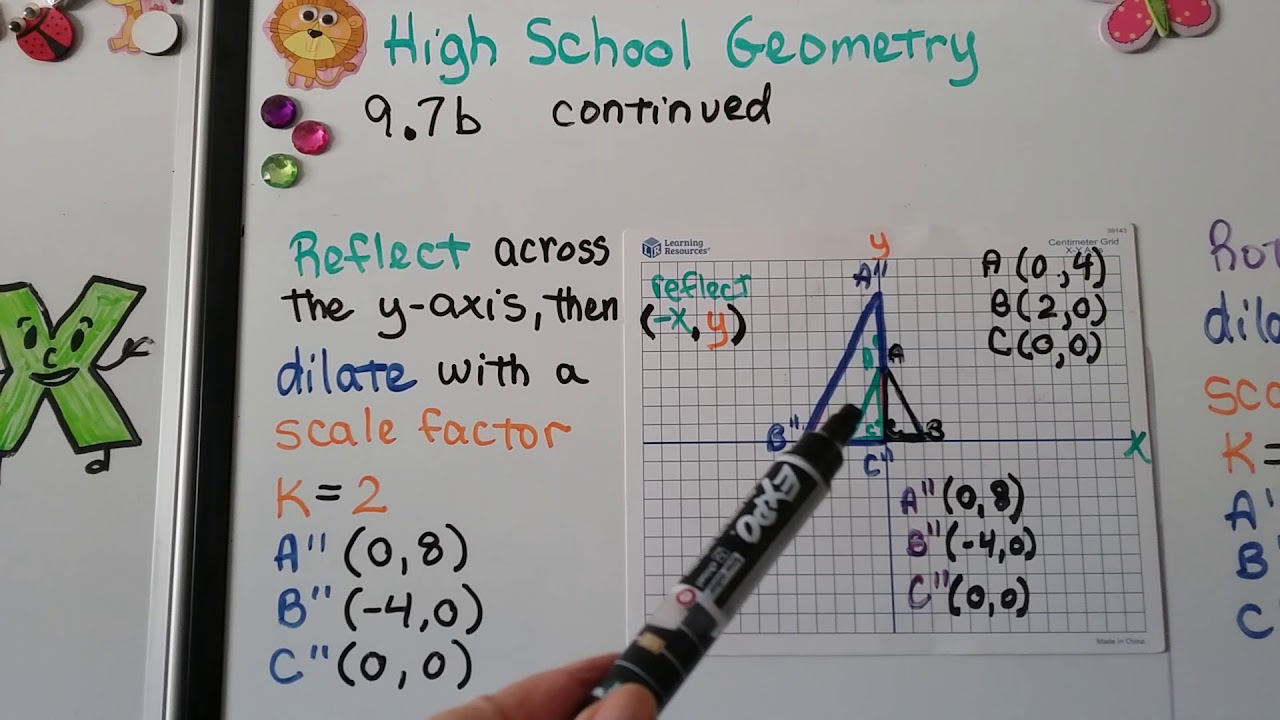 High School Geometry
9.7b continued
Reflect across
the y-axis, then
dilate with a
scale factor
K=2
A" (0,8)
B" (-4,0)
C" (0,0)
Learning
Resources
39143
Centimeter Grid
reflect
(-x, y)
y
A"
A (0,4)
B (2,0)
C (0,0)
A
B"
C
B
x
C"
A" (0,8)
B" (-4,0)
C" (0,0)
Made in China
EXPO
K=
A"
B
C